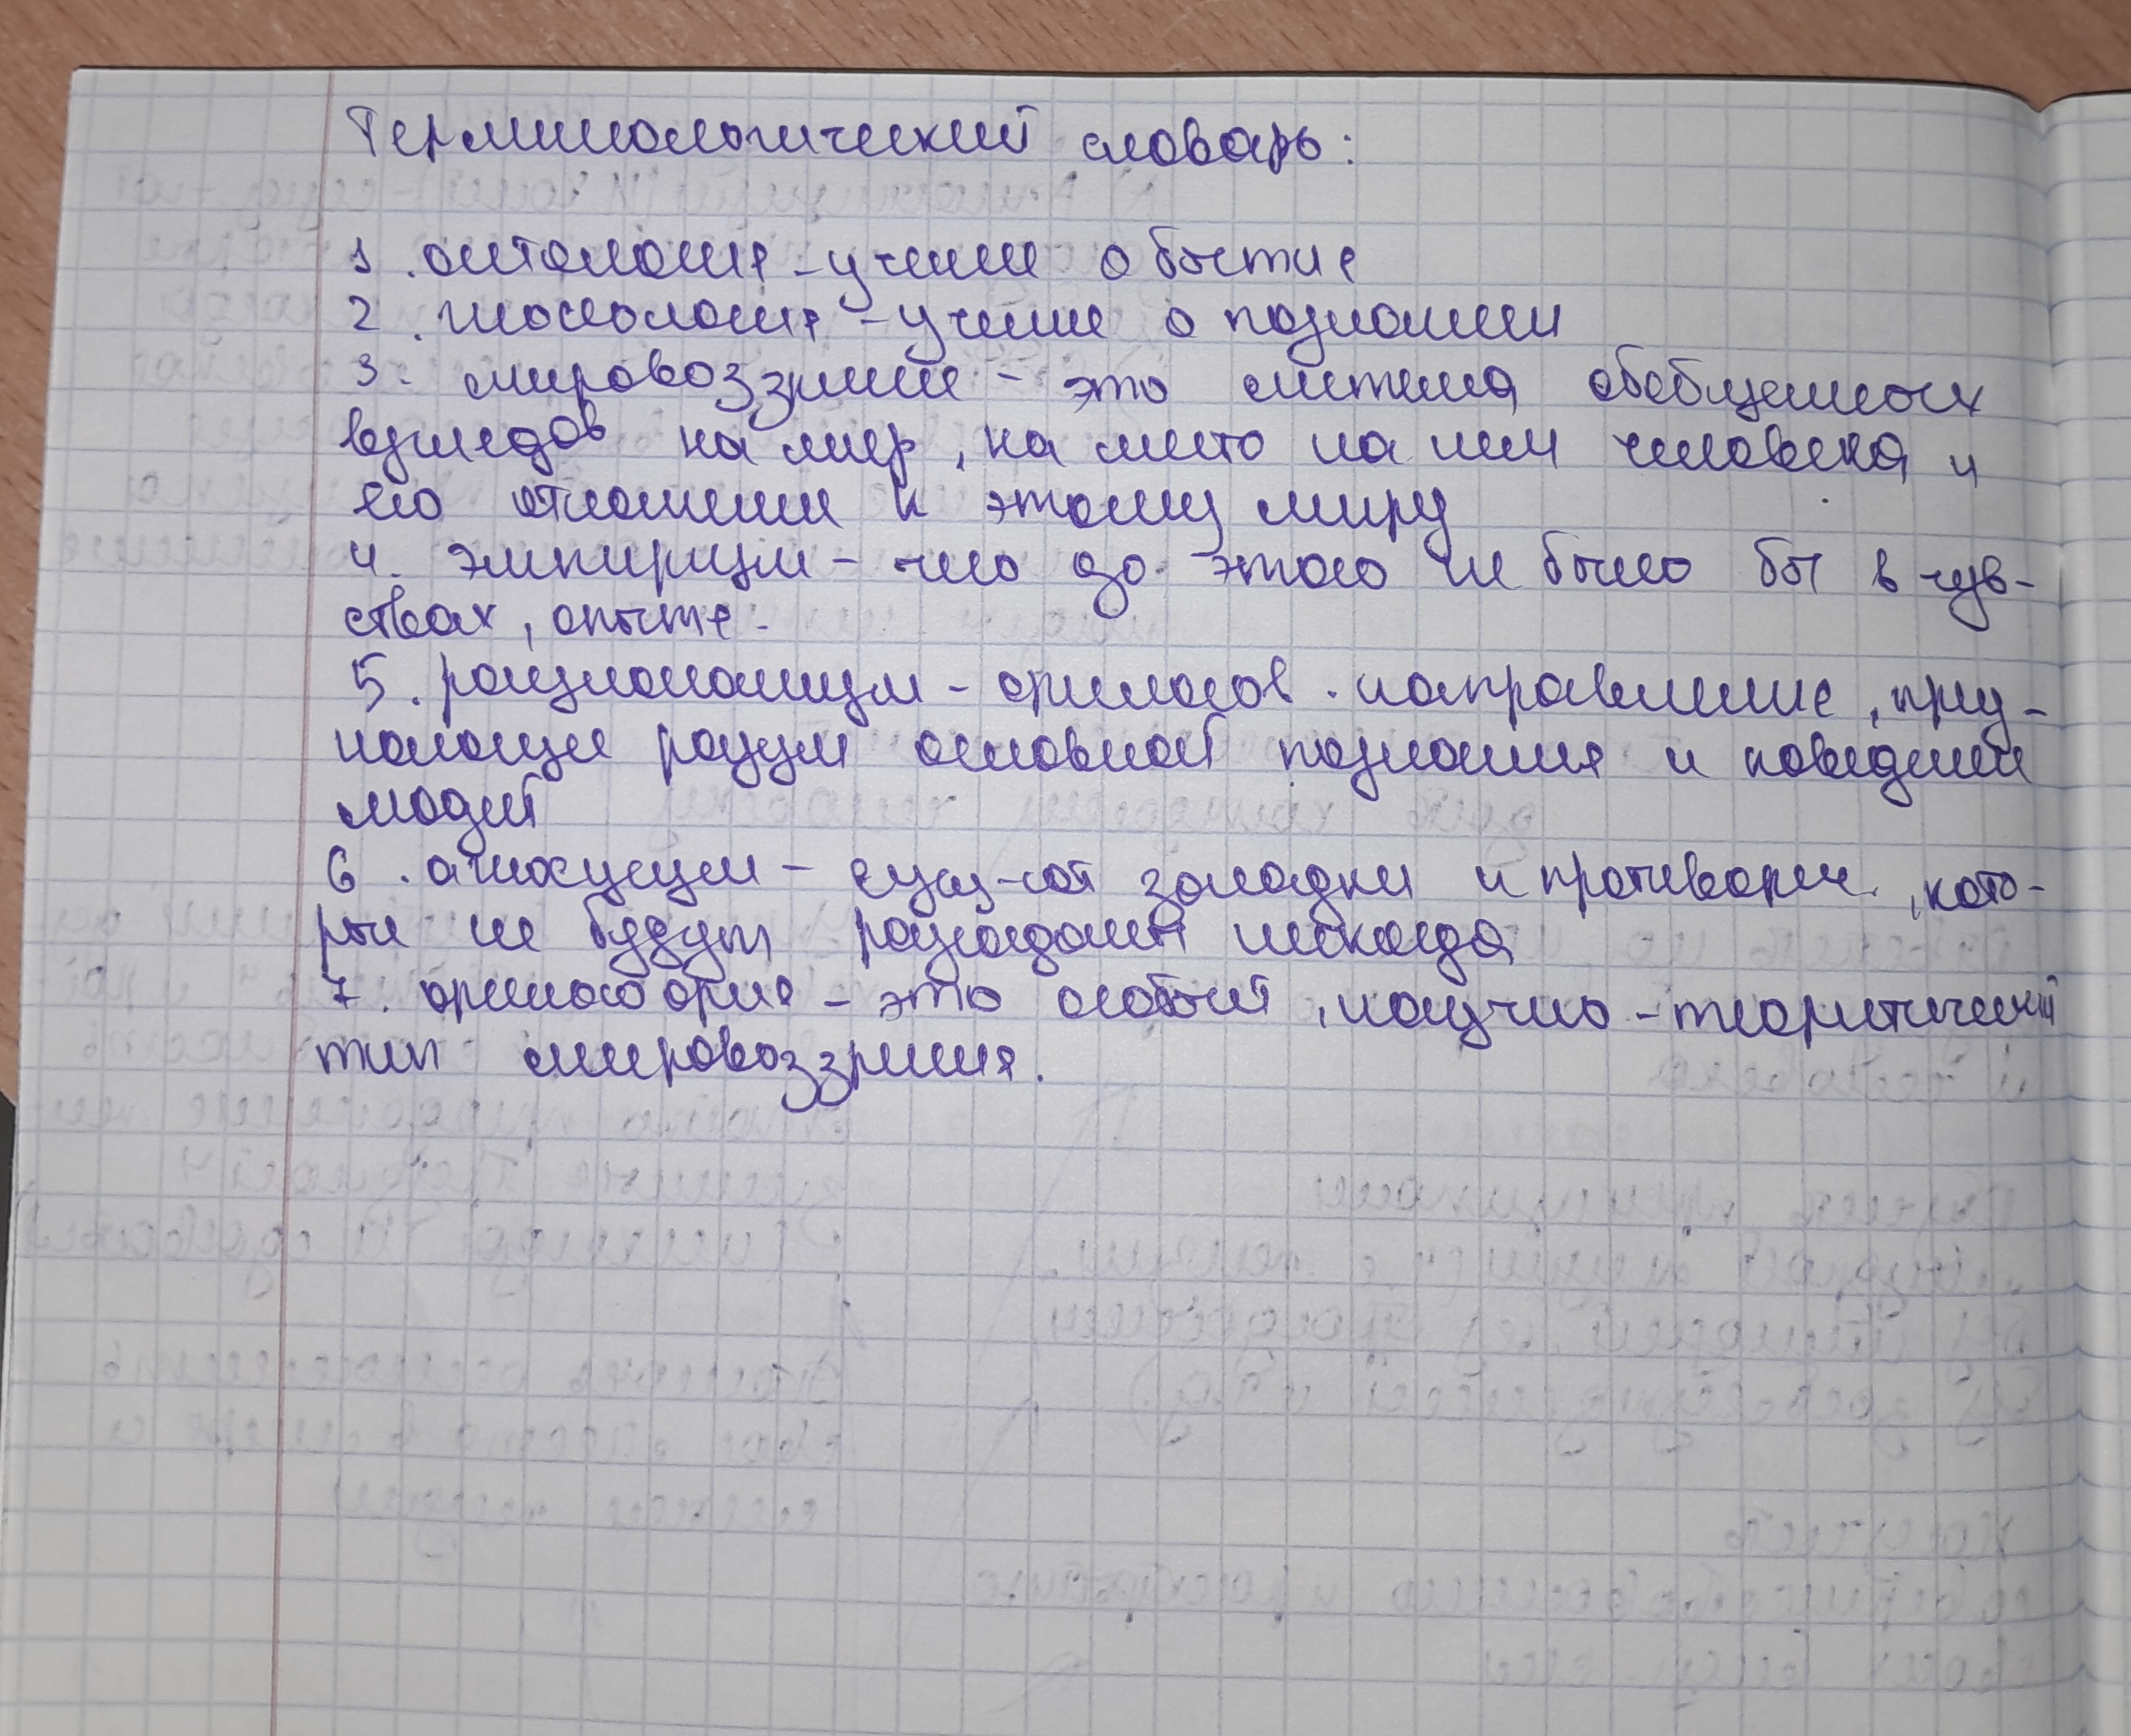 Терминологический словарь:
1. онтология - учение о бытие
2. гносеология - учение о познании
3. мировоззрение - это система обобщенных
взглядов на мир, на место на нем человека и
его отношение к этому миру
4. эмпиризм - чего до этого не было бы в чув-
ствах, опыте.
5. рационализм - философ. направление, приз-
нающее разум основной познания и поведения
людей
6. агностицизм - сущ-ют загадки и противореч., кото-
рые не будут разгаданы никогда
7. философия - это особый, научно-теоретический
тип мировоззрения.